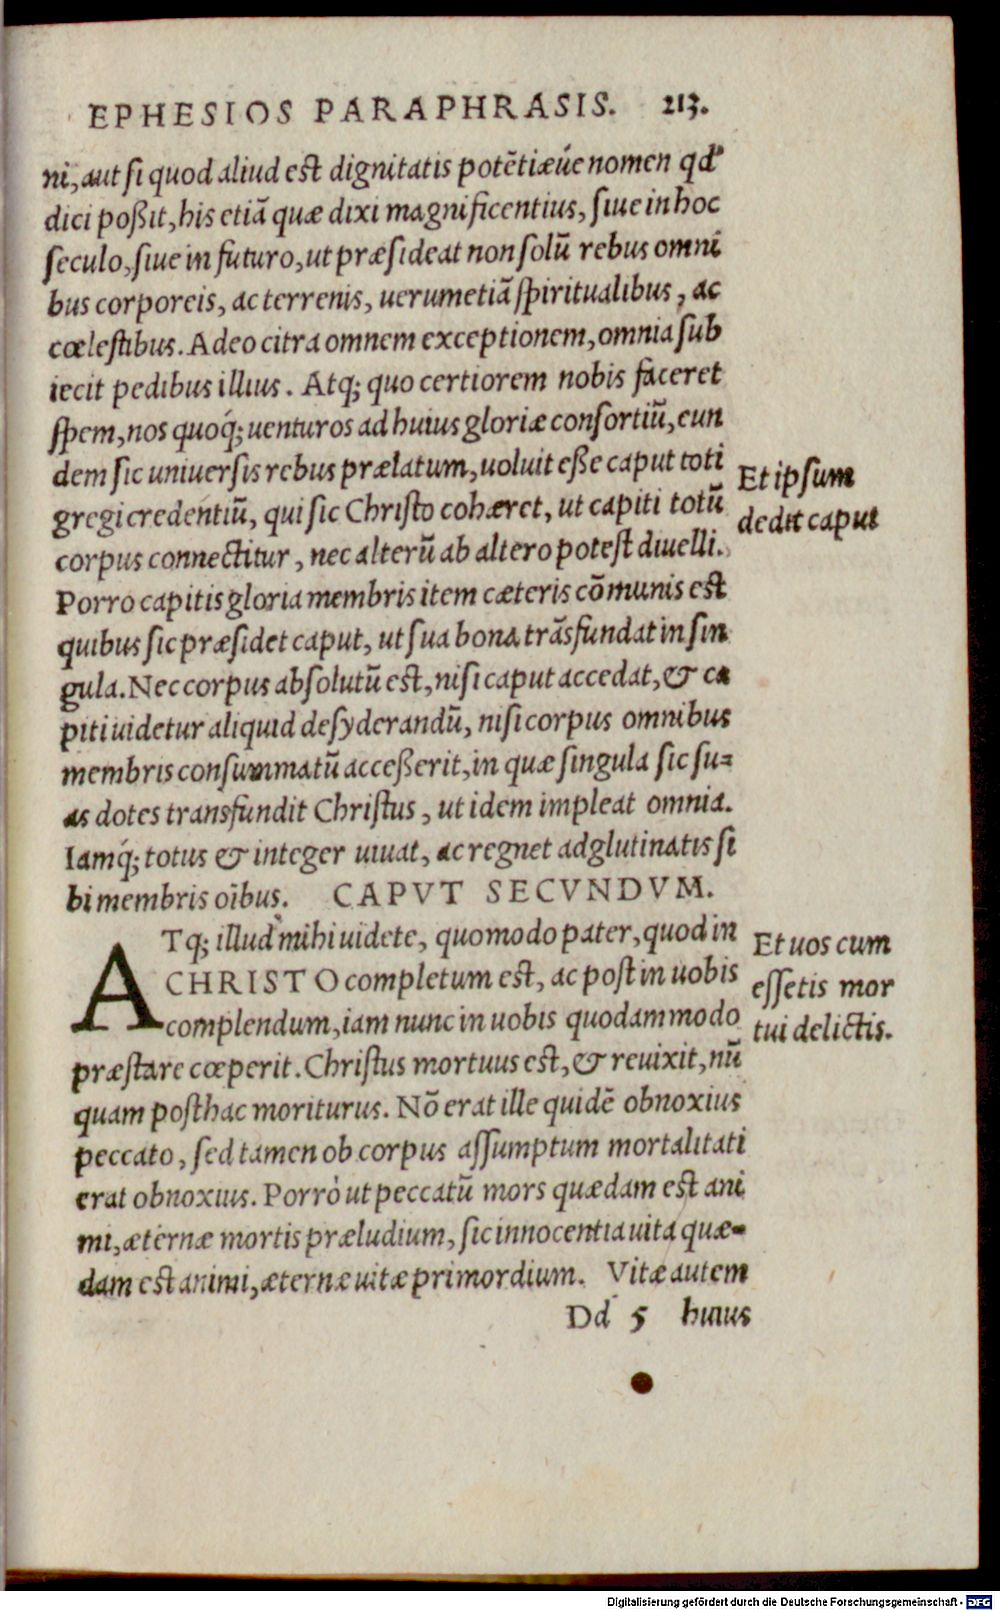 EPHESIOS PARAPHRASIS. 213.
ni, aut si quod aliud est dignitatis potẽtiæúe nomen qđ
dici poßit, his etiã quæ dixi magnificentius, siue in hoc
seculo, siue in futuro, ut præsideat non solũ rebus omni
bus corporeis, ac terrenis, uerumetiã spiritualibus, ac
cœlestibus. Adeo citra omnem exceptionem, omnia sub
iecit pedibus illius. Atq; quo certiorem nobis faceret
spem, nos quoq́; uenturos ad huius gloriæ consortiũ, eun
dem sic uniuersis rebus prælatum, uoluit eße caput toti
gregi credentiũ, qui sic Christo cohæret, ut capiti totũ
corpus connectitur, nec alterũ ab altero potest diuelli.
Et ipsum
dedit caput
Porro capitis gloria membris item cæteris cõmunis est
quibus sic præsidet caput, ut sua bona trãsfundat in sin
gula. Nec corpus absolutũ est, nisi caput accedat, & ca
piti uidetur aliquid desyderandũ, nisi corpus omnibus
membris consummatũ acceßerit, in quæ singula sic su=
as dotes transfundit Christus, ut idem impleat omnia.
Iamq́; totus & integer uiuat, ac regnet adglutinatis si
bi membris oĩbus. CAPVT SECVNDVM.
ATq; illud mihi uidete, quomodo pater, quod in
CHRISTO completum est, ac post in uobis
complendum, iam nunc in uobis quodammodo
Et uos cum
essetis mor
tui delictis.
præstare cœperit. Christus mortuus est, & reuixit, nũ
quam posthac moriturus. Nõ erat ille quidẽ obnoxius
peccato, sed tamen ob corpus assumptum mortalitati
erat obnoxius. Porrò ut peccatũ mors quædam est ani
mi, æternæ mortis præludium, sic innocentia uita quæ=
dam est animi, æternæ uitæ primordium. Vitæ autem
Dd 5 huius
Digitalisierung gefördert durch die Deutsche Forschungsgemeinschaft - DFG